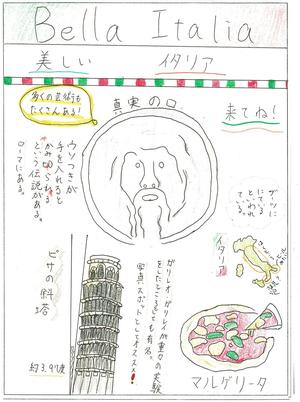 Bella Italia
美しい イタリア
多くの芸術も
たくさんある!
真実の口
来てね!
ウソつきが
手を入れると
かみ切られる
という伝説がある。
ローマにある。
ブーツに
にている
といわれ
ている。
イタリア
ピサの斜塔
約3.97度
ガリレオ・ガリレイが重力の実験
をしたところとしても有名。
写真スポットとしてオススメ!
マルゲリータ